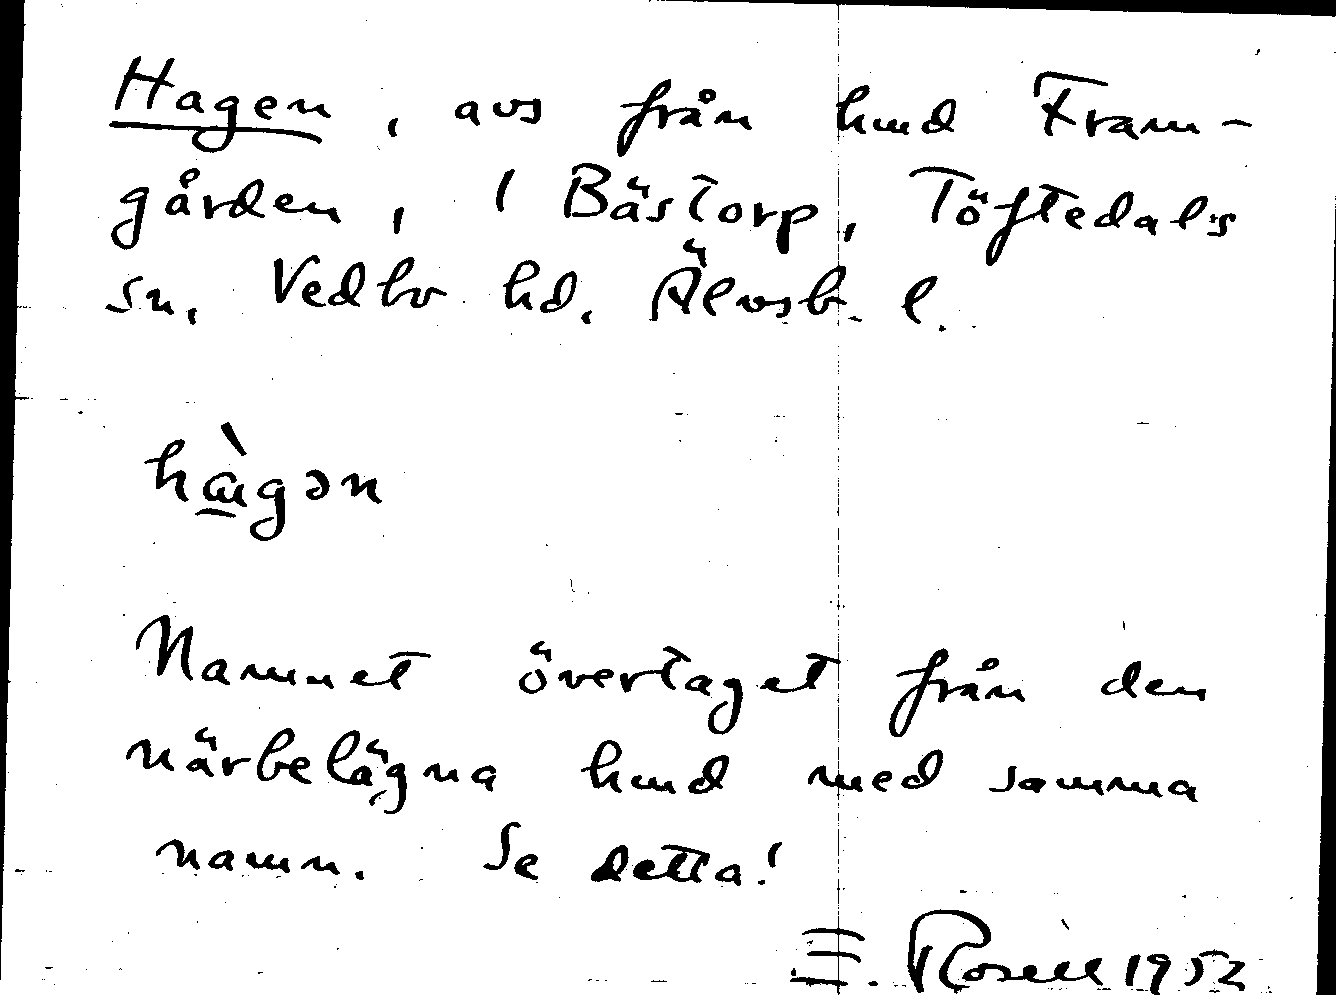 Hagen, avs från hmd Fram-
gården, 1 Bästorp, Töftedals
sn. Vedbo hd. Älvsb. l.
hɑ̀gən
Namnet övertaget från den
närbelägna hmd med samma
namn. Se detta!
E. Rosell 1952